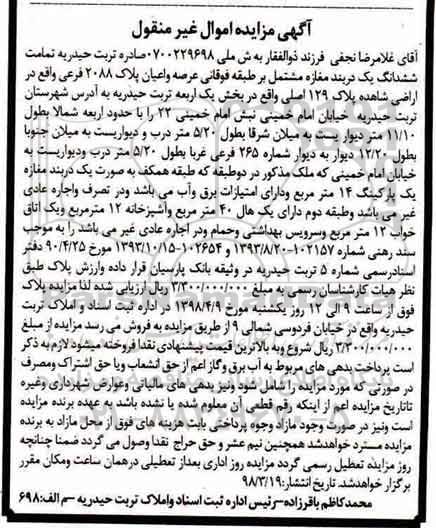 آگهی مزایده اموال غیر منقول
آقای غلامرضا نجفی فرزند ذوالفقار به ش ملی ۰۷۰۰۲۲۹۶۹۸صادره تربت حیدریه تمامت
ششدانگ یک دربند مغازه مشتمل بر طبقه فوقانی عرصه واعیان پلاک ۲۰۸۸ فرعی واقع در
اراضی شاهده پلاک ۱۲۹ اصلی واقع در بخش یک اربعه تربت حیدریه به آدرس شهرستان
تربت حیدریه خیابان امام خمینی نبش امام خمینی ۲۳ را با حدود اربعه شمالا بطول
۱۱/۱۰ متر دیوار یست به میلان شرقا بطول ۵/۲۰ متر درب و دیواریست به میلان جنوبا
بطول ۱۲/۲۰ دیوار به دیوار شماره ۲۶۵ فرعی غربا بطول ۵/۲۰ متر درب ودیواریست به
خیابان امام خمینی که ملک مذکور در دوطبقه که طبقه همکف به صورت یک دربند مغازه
یک پارکینگ ۱۴ متر مربع ودارای امتیازات برق وآب می باشد ودر تصرف واجاره عادی
غیر می باشد وطبقه دوم دارای یک هال ۴۰ متر مربع وآشپزخانه ۱۲ مترمربع ویک اتاق
خواب ۱۲ متر مربع وسرویس بهداشتی وحمام ودر اجاره عادی غیر می باشد را به موجب
سند رهنی شماره ۱۰۲۱۵۷-۱۳۹۳/۸/۲۰ و ۱۰۲۶۵۴-۱۳۹۳/۱۰/۱۵ مورخ ۹۰/۴/۲۵ دفتر
اسنادرسمی شماره ۵ تربت حیدریه در وثیقه بانک پارسیان قرار داده وارزش پلاک طبق
نظر هیات کارشناسان رسمی به مبلغ ۳/۳۰۰/۰۰۰/۰۰۰ ریال ارزیابی شده لذا مزایده پلاک
فوق از ساعت ۹ الی ۱۲ روز یکشنبه مورخ ۱۳۹۸/۴/۹ در اداره ثبت اسناد و املاک تربت
حیدریه واقع در خیابان فردوسی شمالی ۹ از طریق مزایده به فروش می رسد مزایده از مبلغ
۳/۳۰۰/۰۰۰/۰۰۰ ریال شروع وبه بالاترین قیمت پیشنهادی نقدا فروخته میشود لازم به ذکر
است پرداخت بدهی های مربوط به آب برق وگاز اعم از حق انشعاب ویا حق اشتراک ومصرف
در صورتی که مورد مزایده را شامل شود ونیز بدهی های مالیاتی وعوارض شهرداری وغیره
تاتاریخ مزایده اعم از اینکه رقم قطعی آن معلوم شده یا نشده باشد به عهده برنده مزایده
است ونیز در صورت وجود مازاد وجوه پرداختی بابت هزینه های فوق از محل مازاد به برنده
مزایده مسترد خواهدشد همچنین نیم عشر و حق حراج نقدا وصول می گردد ضمنا چنانچه
روز مزایده تعطیل رسمی گردد مزایده روز اداری بعداز تعطیلی درهمان ساعت ومکان مقرر
برگزار خواهدشد. تاریخ انتشار: ۹۸/۳/۱۹
محمدکاظم باقرزاده–رئیس اداره ثبت اسناد واملاک تربت حیدریه –م الف: ۶۹۸